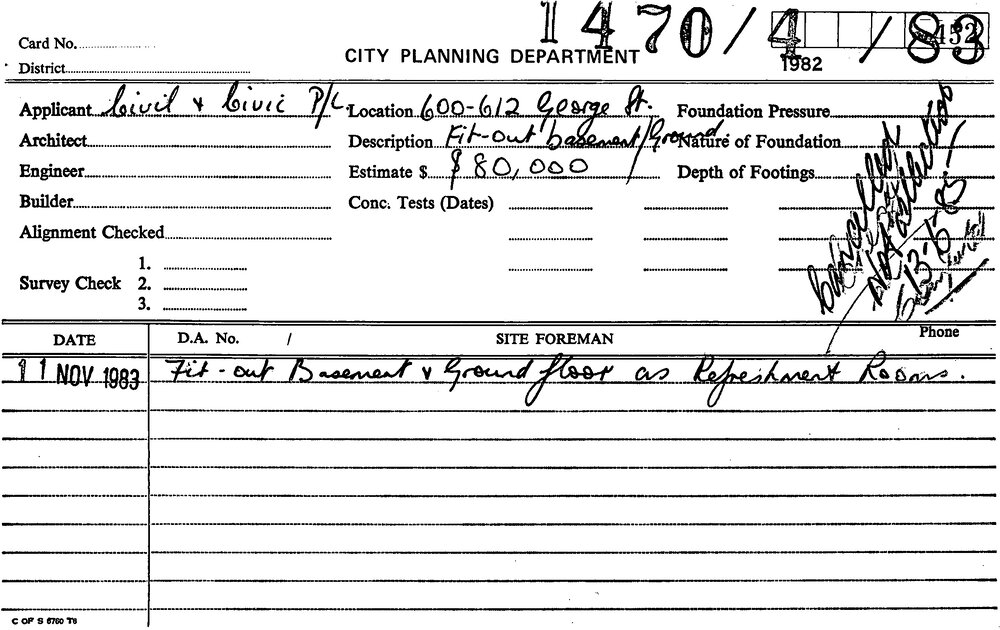 1470/4/83
Card No.
CITY PLANNING DEPARTMENT
1982
District
Applicant Civil & Civic P/L. Location 600-612 George St. Foundation Pressure
Architect Description Fit-out basement/Ground Nature of Foundation
Engineer Estimate $ $80,000 Depth of Footings
Builder Conc. Tests (Dates)
Alignment Checked
1.
Survey Check 2.
3.
Cancelled
Not
13-6-85
Phone
DATE D.A. No. / SITE FOREMAN
11 NOV 1983 Fit-out Basement & Ground floor as Refreshment Rooms.
C OF S 6760 T6